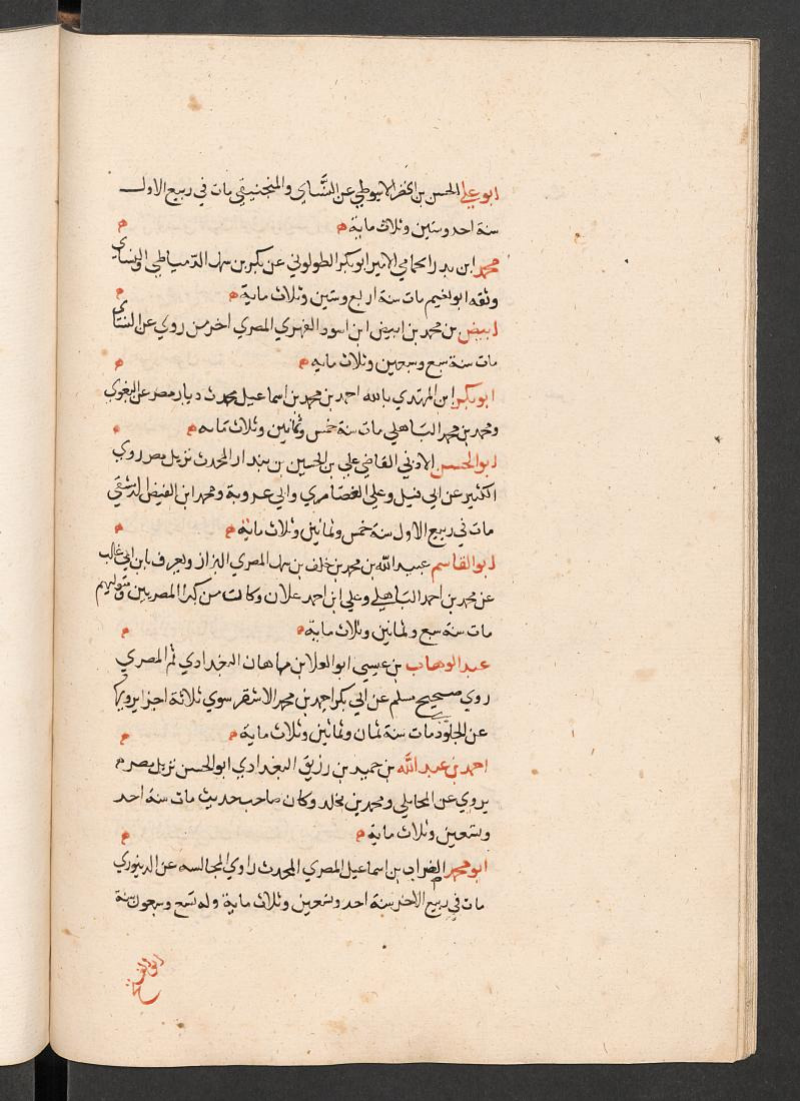 ابو علي الحسن بن الخضر الاسيوطي عن النسَّاي والمنجنيقي مات في ربيع الاول
سنة احد وستين وثلاث ماية م م
محمد ابن بدر الحمامي الامير ابو بكر الطولوني عن بكر بن سهل الدّمياطي والنساي
وثقه ابو نعيم مات سنة اربع وستين وثلاث ماية م م
ابيض بن محمد بن ابيض ابن اسود الفهري المصري اخر من روي عن النساي
مات سنة سبع وسبعين وثلاث مايه م م
ابو بكر ابن المهتدي بالله احمد بن محمد بن اسماعيل محدث ديار مصر عن البغوي
ومحمد بن محمد الباهلي مات سنة خمس وثمانين وثلاث مايه م م
ابو الحسن الادني القاضي علي بن الحسين بن بندار المحدث نزيل مصر روي
الكثير عن ابي فيل وعلي الغضامري وابي عروبة ومحمد ابن الفيض الدمشقي
مات في ربيع الاول سنة خمس وثمانين وثلاث ماية م م
ابو القاسم عبيد الله بن محمد بن خلف بن سهل المصري البزاز ويعرف بابن ابي غالب
عن محمد بن احمد الباهلي وعلي ابن احمد علان وكانت من كبرا المصريين ومتوليهم
مات سنة سبع وثمانين وثلاث ماية م م
عبد الوهاب بن عيسي ابو العلا بن ماهان البغدادي ثم المصري
روي صحيح مسلم عن ابي بكر احمد بن محمد الاشقر سوي ثلاثة اجزا يرويها
عن الجلود مات سنة ثمان وثمانين وثلاث ماية م م
احمد بن عبد الله بن حميد بن رزيق البغدادي ابو الحسن نزيل مصر م
يروي عن المحاملي ومحمد بن مخلد وكان صاحب حديث مات سنة احد
وتسعين وثلاث ماية م م
ابو محمد الضراب بن اسماعيل المصري المحدث راوي المجالسه عن الدينوري
مات في ربيع الاخر سنة احد وتسعين وثلاث ماية وله تسع وسبعون سنة
ابو الفتح